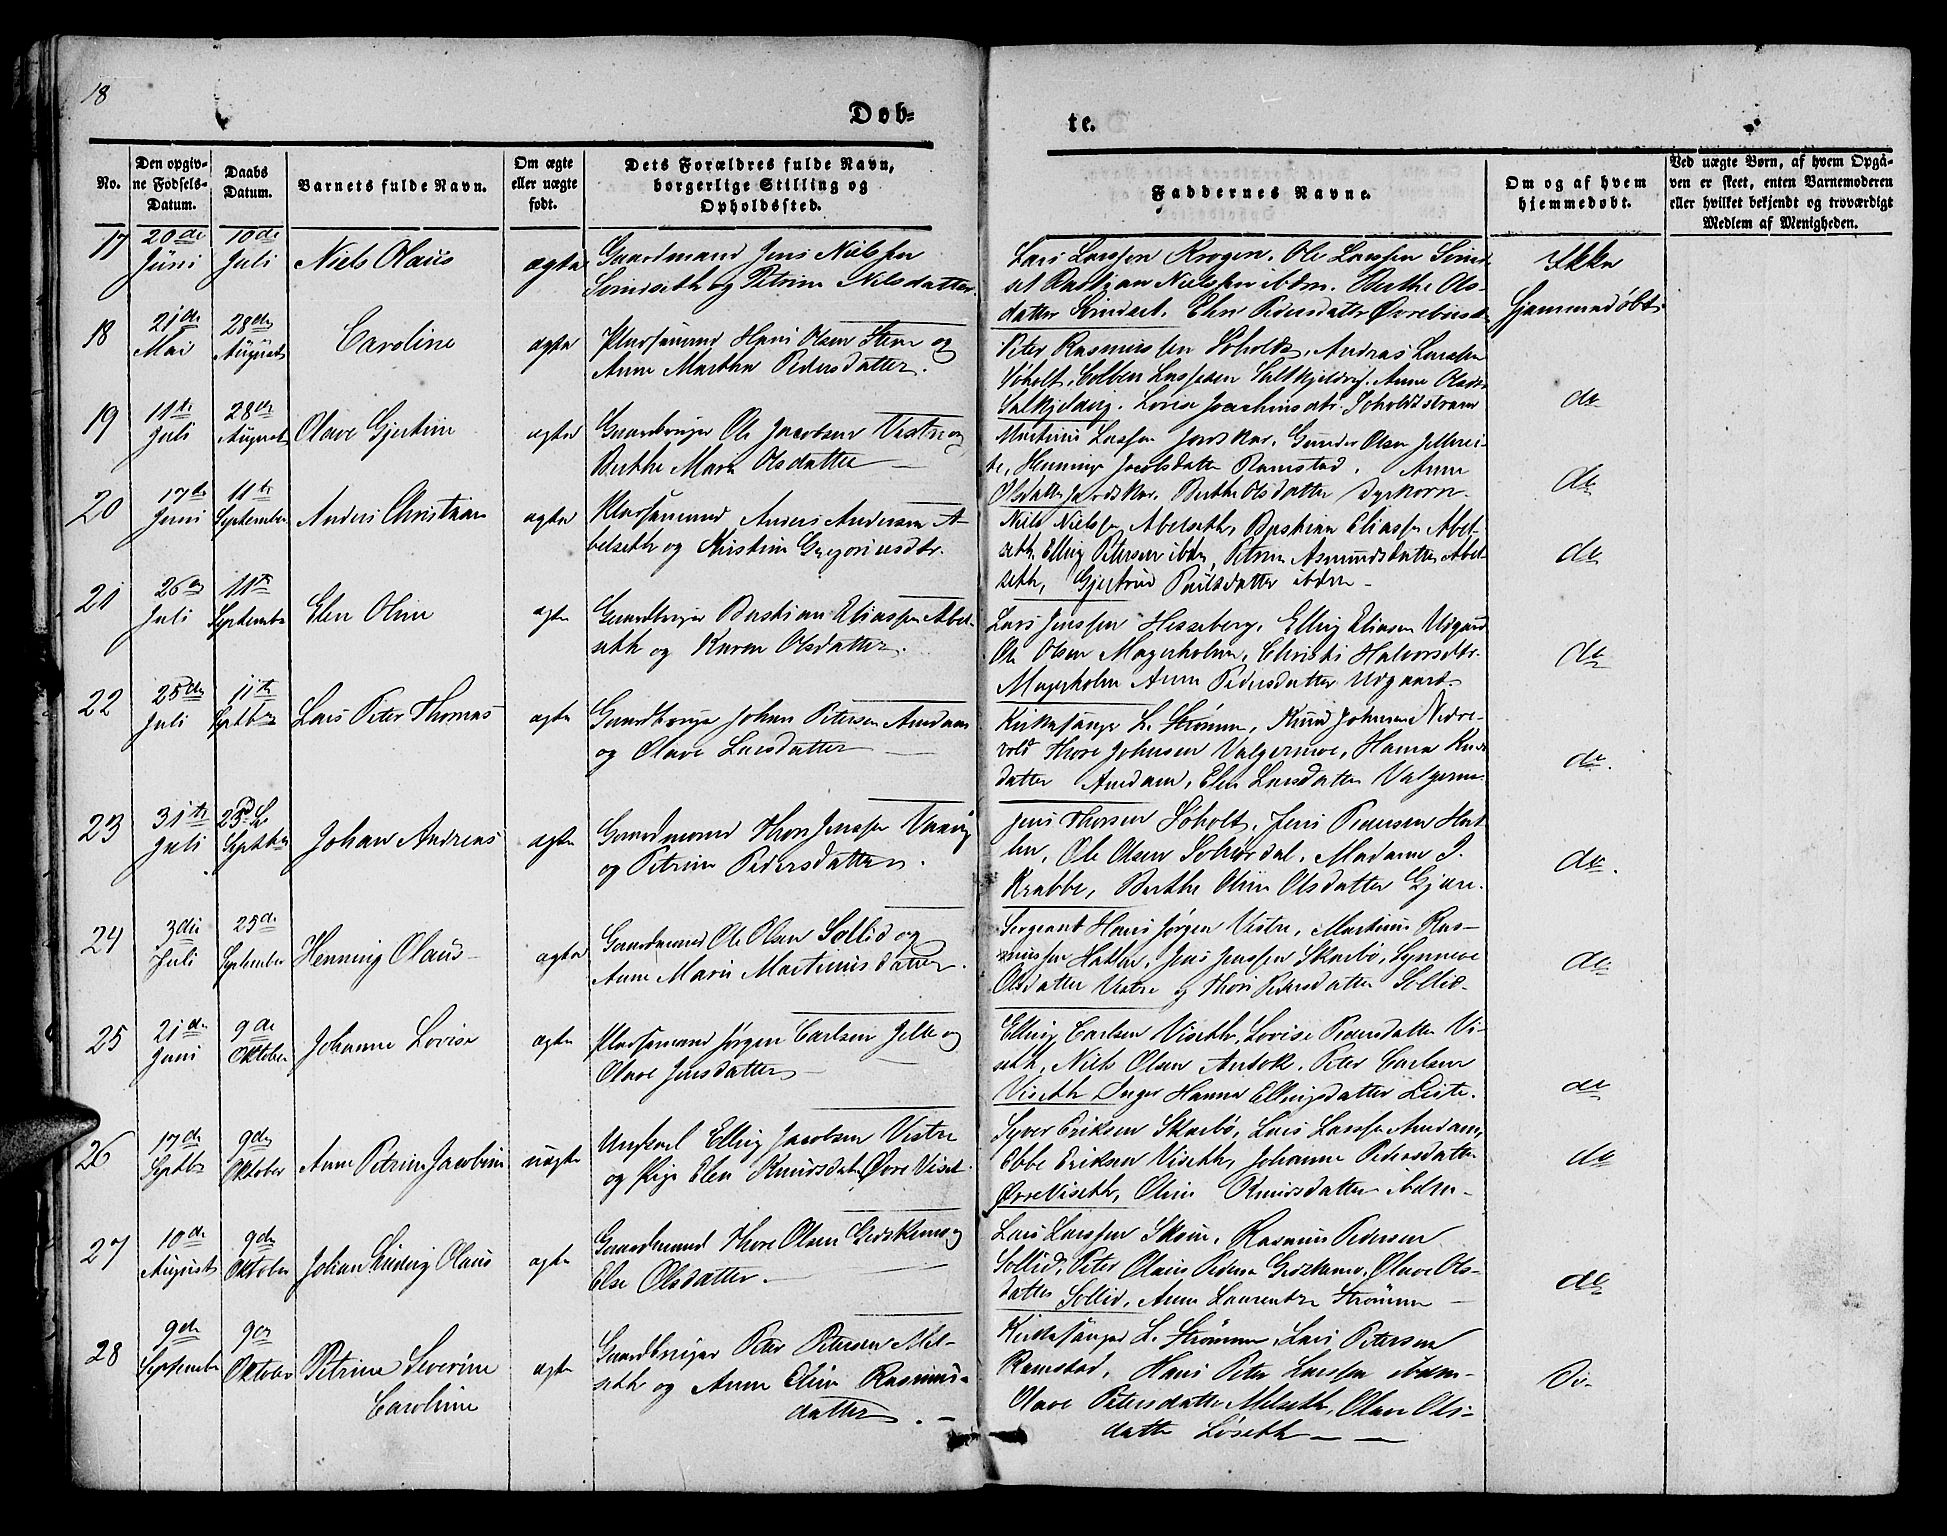 18
Døb-
te.
No.
Den opgiv-
ne Fødsels-
Datum.
Daabs
Datum.
Barnets fulde Navn.
Om ægte
eller uægte
født.
Dets Forældres fulde Navn,
borgerlige Stilling og
Opholdssted.
Faddernes Navne.
Om og af hvem
hjemmedøbt.
Ved uægte Børn, af hvem Opgå-
ven er skeet, enten Barnemoderen
eller hvilket bekjendt og troværdigt
Medlem af Menigheden.
17
20de
Juni
10de
Juli
Niels Olaus
ægte
Gaardmand Jens Nielsen
og Petrine Nilsdatter.
Lars Larssen Krogen, Ole Larssen
Nielssen ibdm. Berthe Ols-
datter Elen Pedersdatter
Ikke
Hjemmedøbt
18
21de
Mai
28de
August
Caroline
ægte
Pladsemand Hans Olsen Steen og
Anne Marthe Pedersdatter.
Peter Rasmussen Søholt, Andreas Larssen
Søholt, Larssen Anne
Lovise Joachimsdtr. Søholdtstrann
do
19
11te
Juli
28de
August
Olave Gjertine
ægte
Gaardbruger Ole Jacobsen Vestre og
Berthe Marie Olsdatter
Martinus Larssen Jordskar, Gunder Olsen
Henninge Jacobsdatter Ramstad. Anne
Olsdatter Jordskar, Berthe Olsdatter Dyrkorn
do
20
17de
Juni
11te
September
Anders Christian
ægte
Pladsemand Anders Andersen A-
belseth og Kirstine Gregoriusdtr.
Niels Nielssen Abelseth, Bastian Eliassen Abel-
seth, Elling Petersen ibdm, Petrine Asmundsdatter Abel-
seth, Gjertrud Paulsdatter ibdm
do
21
26de
Juli
11te
September
Elen Oline
ægte
Gaardbruger Bastian Eliassen Abel-
seth og Karen Olsdatter.
Lars Jenssen Hesseberg, Elling Eliasen Udgaard
Ole Olsen Magerholm, Christi Halvorsdtr.
Magerholm Anne Pedersdatter Udgaard.
do
22
25de
Juli
11te
Septbr
Lars Peter Thomas
ægte
Gaardbruger Johan Petersen Amdam
og Olave Larsdatter
Kirkesanger L. Strømme, Knud Johnsen Nedre-
vold Thore Johnsen Valgermoe, Hanne Knuds-
datter Amdam, Elen Larsdatter Valgermoe
do.
23
31te
Juli
25de
Septbr
Johan Andreas
ægte
Gaardmand Thore Jenssen
og Petrine Pedersdatter.
Jens Thorsen Søholt, Jens Pedersen Hat-
len, Ole Olsen Madame J.
Krabbe, Berthe Oline Olsdatter Gjære.
do.
24
3die
Juli
25de
September
Henning Olaus
ægte
Gaardmand Ole Olsen Sollid og
Anne Marie Martinusdatter.
Sergeant Hans Jørgen Vestre, Martinus Ras-
mussen Hatlen, Jens Jenssen Skarbø, Synneve
Olsdatter Vestre og Thore Pedersdatter Sollid
do
25
21de
Juni
9de
Oktober
Johanne Lovise
ægte
Pladsemand Jørgen Carlsen Jelle og
Olave Jensdatter
Elling Carlsen Viseth, Lovise Pedersdatter Vi-
seth, Niels Olsen Andok, Peter Carlsen
Viseth Inger Hanne Ellingsdatter Liste.
do
26
17de
Septbr
9de
Oktober
Anne Petrine Jacobine
uægte
Ungkarl Elling Jacobsen Vestre
og Pige Elen Knudsdatter Øvre Viset.
Syver Eriksen Skarbø, Lars Larssen Amdam,
Ebbe Eriksen Viseth, Johanne Pedersdatter
Øvre Viseth, Oline Knudsdatter ibdm
do
27
10de
August
9de
Oktober
Johan Ludvig Olaus
ægte
Gaardmand Thore Olsen Gjedskemo og
Else Olsdatter.
Lars Larssen Rasmus Pedersen
Sollid, Peter Olaus Olave Ols-
datter Sollid, Anne Laurentze Strømme
do
28
9de
September
9de
Oktober
Petrine Severine
Caroline
ægte
Gaardbruger Peter Petersen Mel-
seth og Anne Oline Rasmus-
datter.
Kirkesanger L. Strømme, Lars Petersen
Ramstad, Hans Peter Larssen ibdm
Olave Petersdatter Melseth, Olave Ols-
datter Løseth
Do